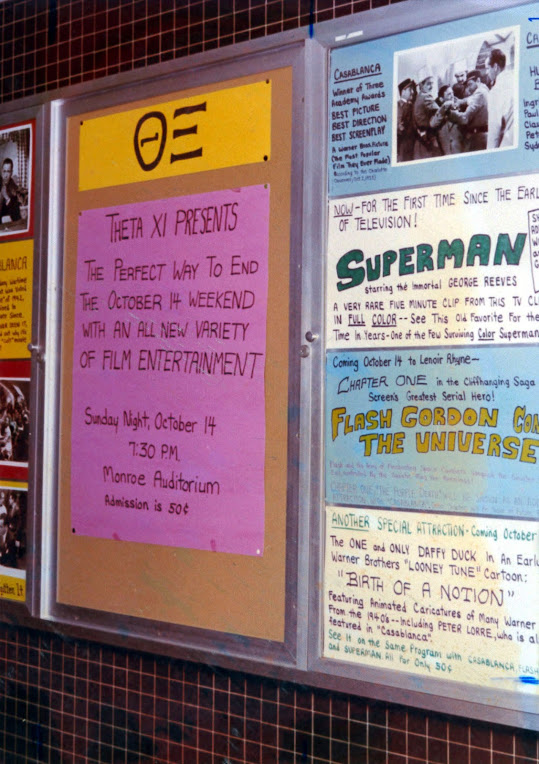 LANCA
ΘΞ
THETA XI PRESENTS
THE PERFECT WAY TO END
THE OCTOBER 14 WEEKEND
WITH AN ALL NEW VARIETY
OF FILM ENTERTAINMENT
Sunday Night, October 14
7:30 P.M.
Monroe Auditorium
Admission is 50¢
CASABLANCA
Winner of Three
Academy Awards
BEST PICTURE
BEST DIRECTION
BEST SCREENPLAY
A Warner Bros. Picture
(The Most Popular
Film They Ever Made)
According to the Charlotte
CA
Hu
B
Ingr
Paul
Clau
Pete
Sydn
NOW-FOR THE FIRST TIME SINCE THE EARL
OF TELEVISION!
SUPERMAN
starring the Immortal GEORGE REEVES
A VERY RARE FIVE MINUTE CLIP FROM THIS TV CL
IN FULL COLOR--See This Old Favorite For the
Time In Years-One of the Few Surviving Color Superman
Coming October 14 to Lenoir Rhyne~
CHAPTER ONE in the Cliffhanging Saga
Screen's Greatest Serial Hero!
FLASH GORDON CON
THE UNIVERSE
ANOTHER SPECIAL ATTRACTION-Coming October
The ONE and ONLY DAFFY DUCK In An Early
Warner Brothers "LOONEY TUNE" Cartoon:
"BIRTH OF A NOTION"
Featuring Animated Caricatures of Many Warner
From the 1940's--Including PETER LORRE, who is al
featured in "Casablanca".
See It on the Same Program with CASABLANCA, FLASH
and SUPERMAN. All For Only 50¢